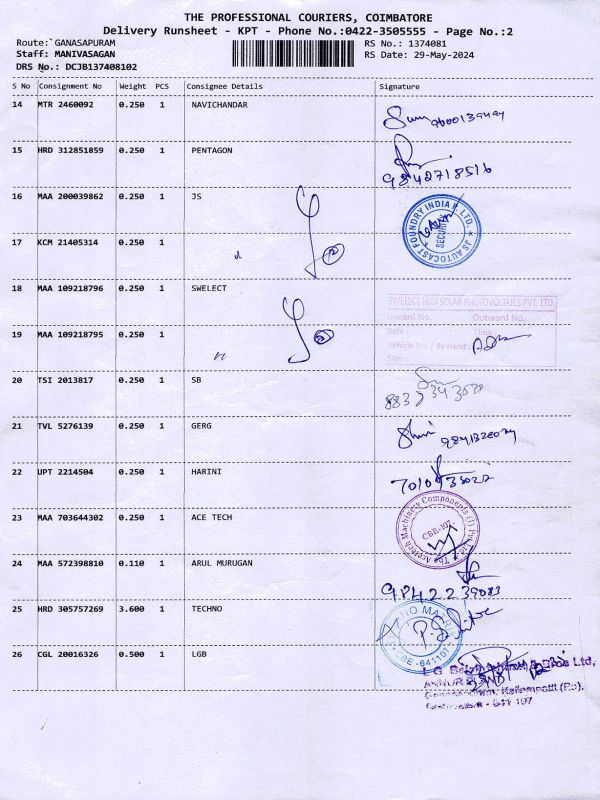 THE PROFESSIONAL COURIERS, COIMBATORE
Delivery Runsheet - KPT - Phone No.:0422-3505555 - Page No.:2
Route: GANASAPURAM
RS No.: 1374081
Staff: MANIVASAGAN
RS Date: 29-May-2024
DRS No.: DCJB137408102
S No Consignment No Weight PCS Consignee Details Signature
14 MTR 2460092 0.250 1 NAVICHANDAR
15 HRD 312851859 0.250 1 PENTAGON
9842718516
16 MAA 200039862 0.250 1 JS
JS AUTOCAST FOUNDRY INDIA P. LTD.
SECURITY
17 KCM 21405314 0.250 1
18 MAA 109218796 0.250 1 SWELECT
SWELECT HHV SOLAR PHOTOVOLTAICS PVT. LTD.
Inward No. Outward No.
Date: Time:
19 MAA 109218795 0.250 1
Vehicle No. / By Hand:
Sign:
20 TSI 2013817 0.250 1 SB
21 TVL 5276139 0.250 1 GERG
22 UPT 2214504 0.250 1 HARINI
23 MAA 703644302 0.250 1 ACE TECH
The Acetech Machinery Components (I) Pvt Ltd
CBE-107.
24 MAA 572398810 0.110 1 ARUL MURUGAN
9842239083
25 HRD 305757269 3.600 1 TECHNO
26 CGL 20016326 0.500 1 LGB
Bros Ltd,